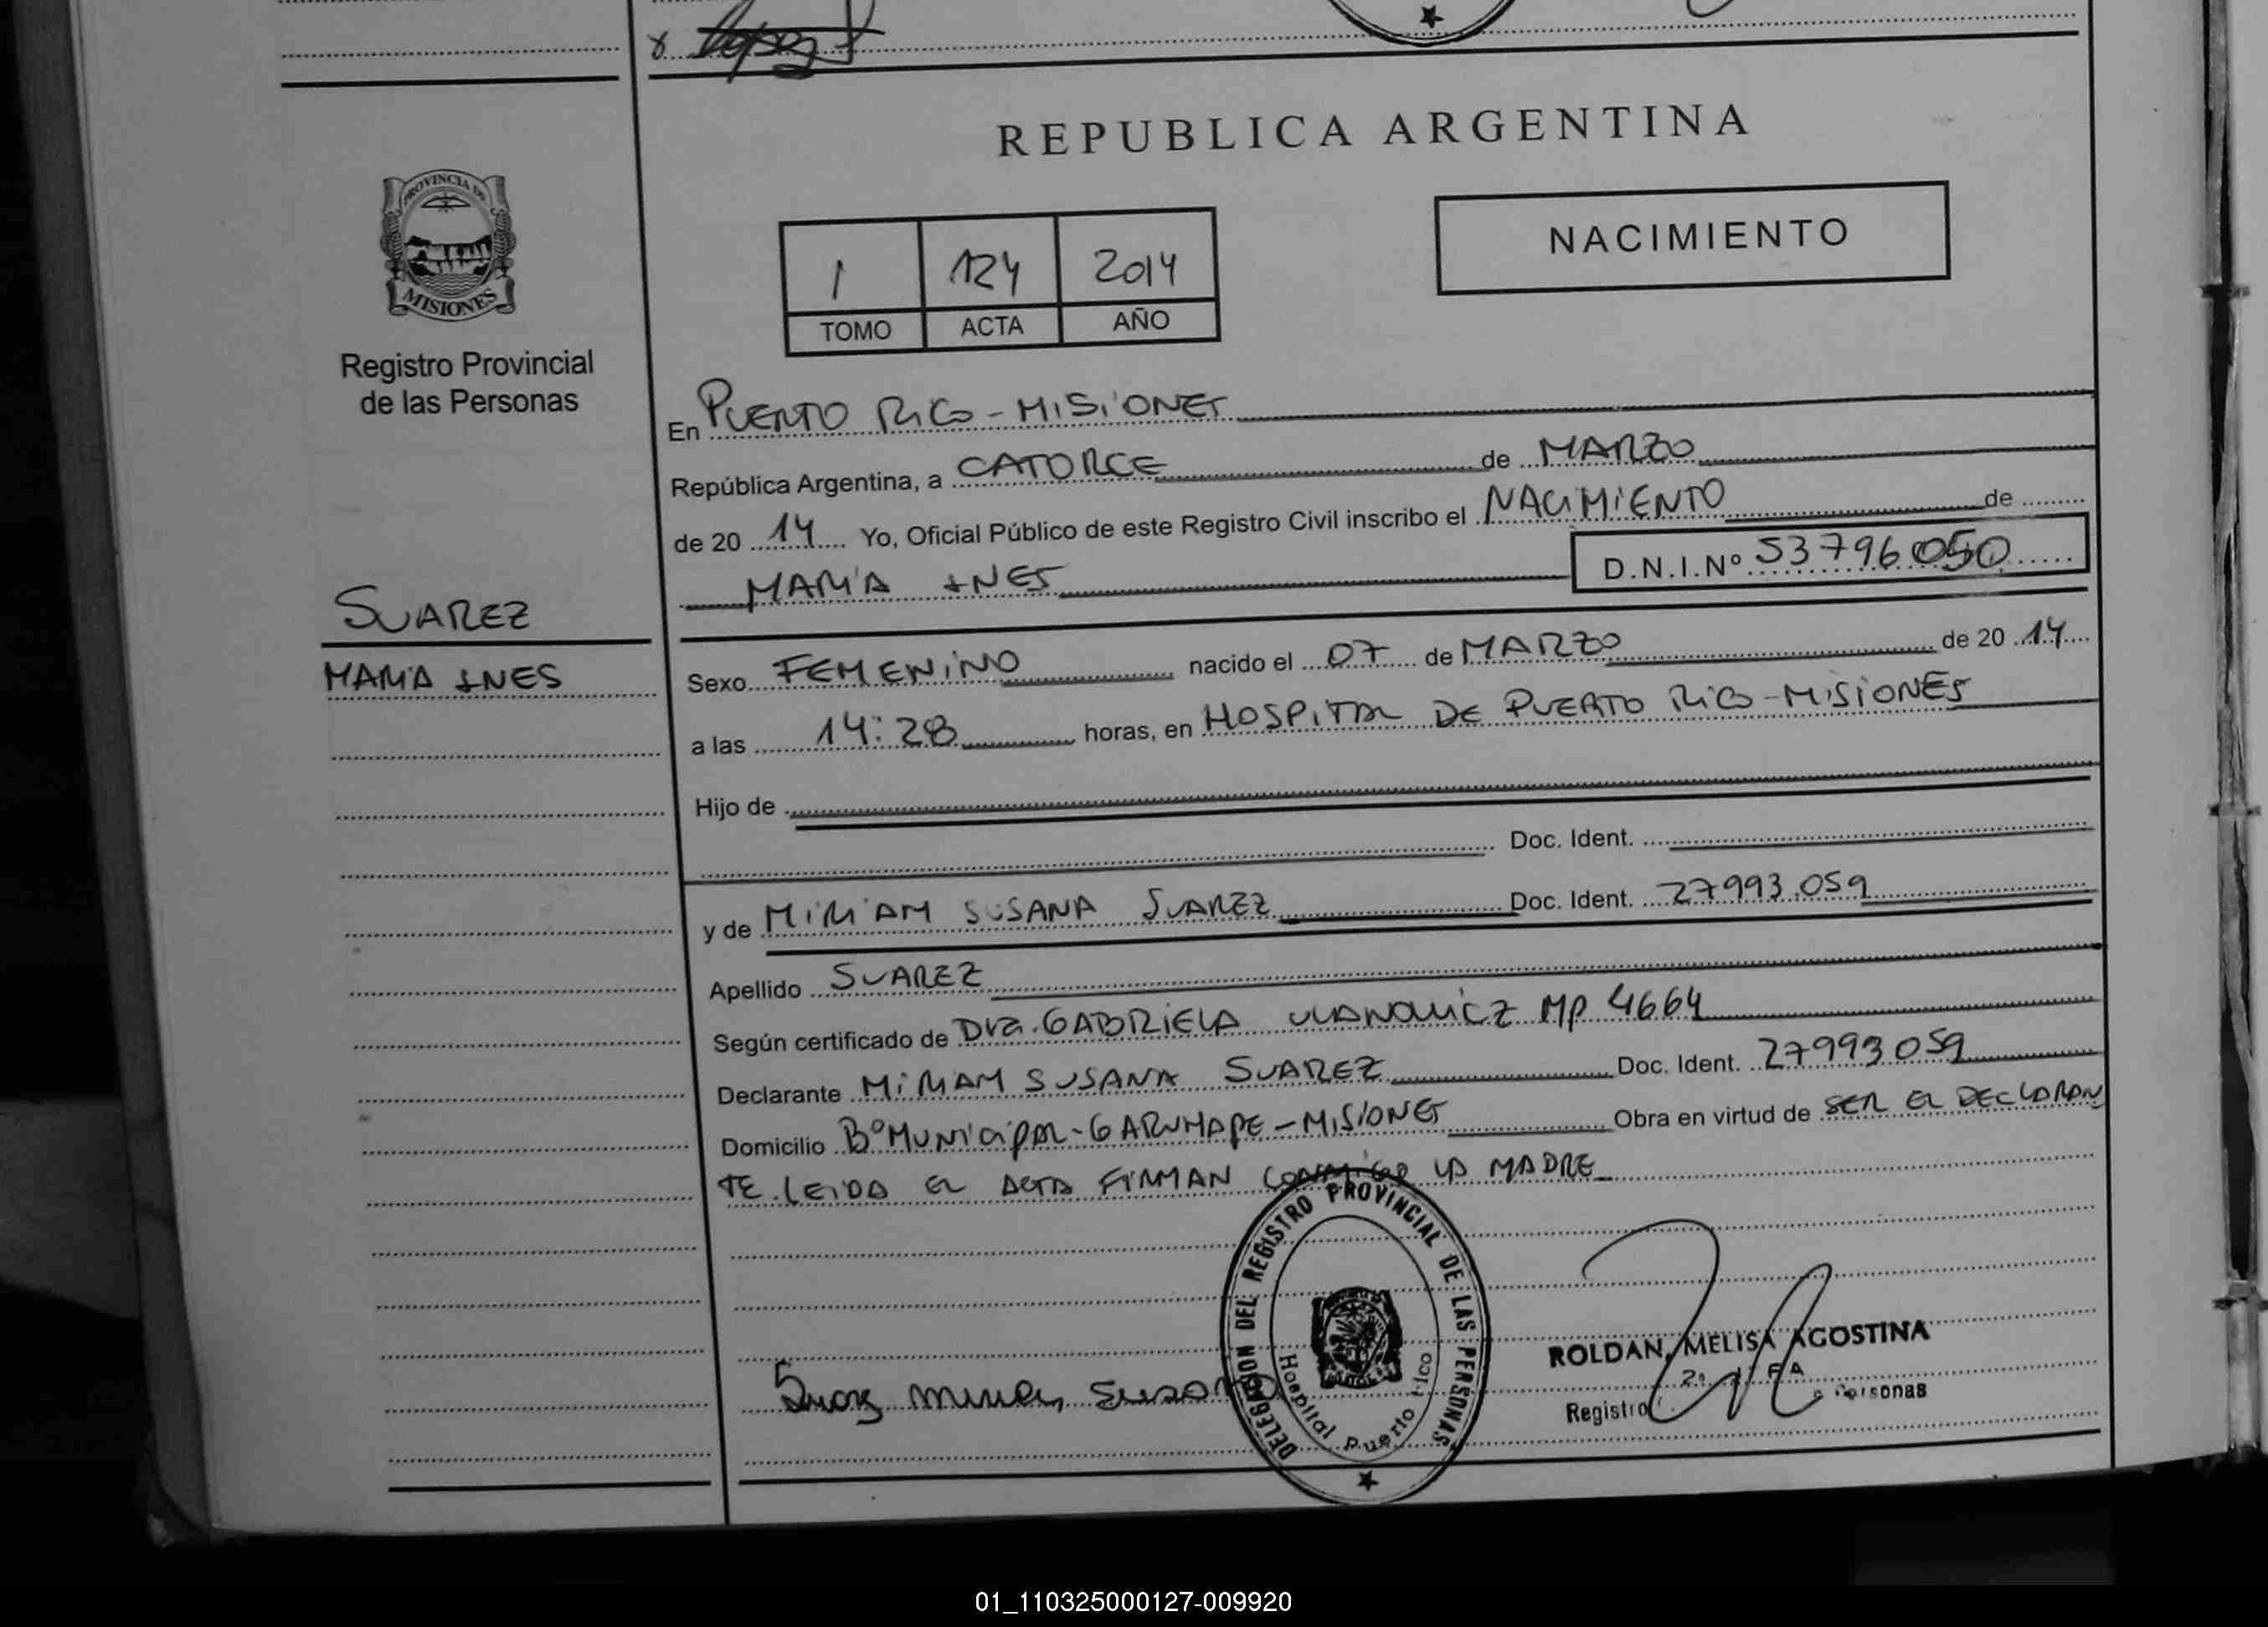 REPUBLICA ARGENTINA
PROVINCIA DE
MISIONES
Registro Provincial
de las Personas
NACIMIENTO
1 124 2014
TOMO ACTA AÑO
En PUERTO RICO - MISIONES
República Argentina, a CATORCE de MARZO
de 20 14 Yo, Oficial Público de este Registro Civil inscribo el NACIMIENTO de
MARIA INES D.N.I.Nº 53796050
SUAREZ
MARIA INES
Sexo FEMENINO nacido el 07 de MARZO de 20 14
a las 14:28 horas, en HOSPITAL DE PUERTO RICO - MISIONES
Hijo de
Doc. Ident.
y de MIRIAM SUSANA SUAREZ Doc. Ident. 27993.059
Apellido SUAREZ
Según certificado de Dra. GABRIELA ULANOWICZ MP 4664
Declarante MIRIAM SUSANA SUAREZ Doc. Ident. 27993059
Domicilio Bº MUNICIPAL - GARUHAPE - MISIONES Obra en virtud de SER EL DECLARAN
TE. LEIDA EL ACTA FIRMAN CONMIGO LA MADRE
DELEGACION DEL REGISTRO PROVINCIAL DE LAS PERSONAS
Hospital Puerto Rico
ROLDAN, MELISA AGOSTINA
Registro Personas
01_110325000127-009920